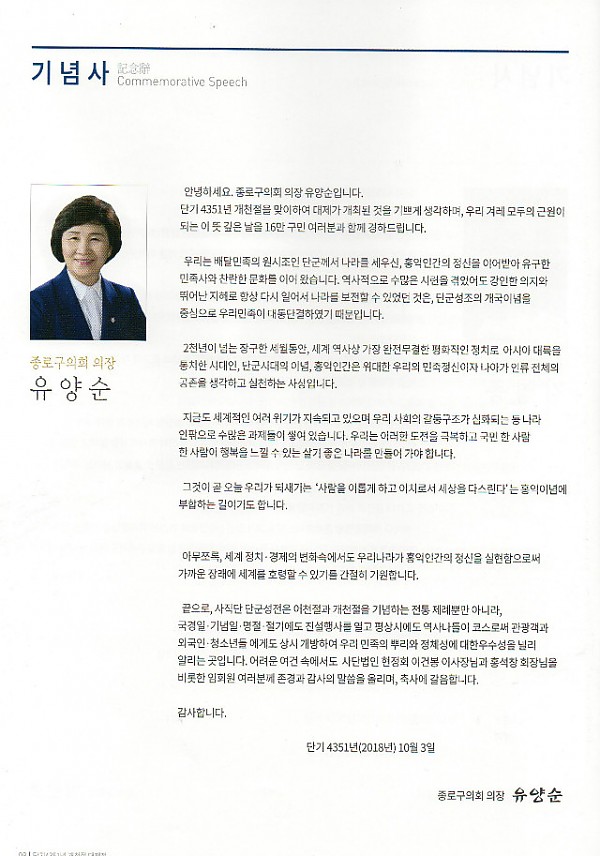 기념사 記念辭
Commemorative Speech
종로구의회 의장
유양순
안녕하세요. 종로구의회 의장 유양순입니다.
단기 4351년 개천절을 맞이하여 대제가 개최된 것을 기쁘게 생각하며, 우리 겨레 모두의 근원이
되는 이 뜻 깊은 날을 16만 구민 여러분과 함께 경하드립니다.
우리는 배달민족의 원시조인 단군께서 나라를 세우신, 홍익인간의 정신을 이어받아 유구한
민족사와 찬란한 문화를 이어 왔습니다. 역사적으로 수많은 시련을 겪었어도 강인한 의지와
뛰어난 지혜로 항상 다시 일어서 나라를 보전할 수 있었던 것은, 단군성조의 개국이념을
중심으로 우리민족이 대동단결하였기 때문입니다.
2천년이 넘는 장구한 세월동안, 세계 역사상 가장 완전무결한 평화적인 정치로 아시아 대륙을
통치한 시대인, 단군시대의 이념, 홍익인간은 위대한 우리의 민족정신이자 나아가 인류 전체의
공존을 생각하고 실천하는 사상입니다.
지금도 세계적인 여러 위기가 지속되고 있으며 우리 사회의 갈등구조가 심화되는 등 나라
안팎으로 수많은 과제들이 쌓여 있습니다. 우리는 이러한 도전을 극복하고 국민 한 사람
한 사람이 행복을 느낄 수 있는 살기 좋은 나라를 만들어 가야 합니다.
그것이 곧 오늘 우리가 되새기는 '사람을 이롭게 하고 이치로서 세상을 다스린다'는 홍익이념에
부합하는 길이기도 합니다.
아무쪼록, 세계 정치·경제의 변화속에서도 우리나라가 홍익인간의 정신을 실현함으로써
가까운 장래에 세계를 호령할 수 있기를 간절히 기원합니다.
끝으로, 사직단 단군성전은 어천절과 개천절을 기념하는 전통 제례뿐만 아니라,
국경일·기념일·명절·절기에도 진설행사를 열고 평상시에도 역사나들이 코스로써 관광객과
외국인·청소년들 에게도 상시 개방하여 우리 민족의 뿌리와 정체성에 대한우수성을 널리
알리는 곳입니다. 어려운 여건 속에서도 사단법인 현정회 이건봉 이사장님과 홍석창 회장님을
비롯한 임회원 여러분께 존경과 감사의 말씀을 올리며, 축사에 갈음합니다.
감사합니다.
단기 4351년(2018년) 10월 3일
종로구의회 의장 유양순